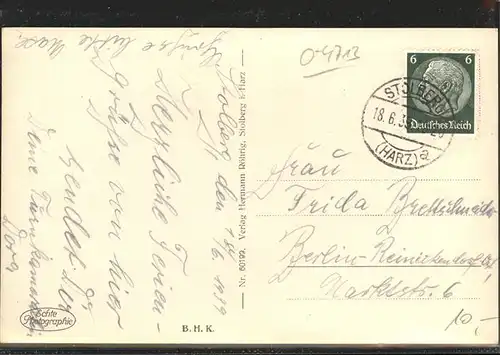 Stolberg, den 18/6. 1939
Herzliche Ferien-
grüße von hier
sendet Dir
Deine
Dora
Echte
Photographie
B. H. K.
Nr. 60199. Verlag Hermann Döhrig, Stolberg i. Harz
04713
6 6
Deutsches Reich
STOLBERG
18. 6. 3
(HARZ) a
Frau
Frida
Berlin-Reinickendorf
Marktstr. 6
10,-